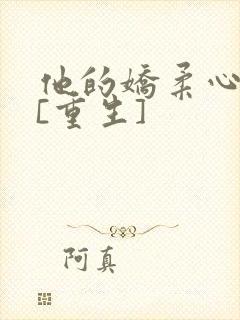 他的嬌柔心
[重生]
阿真